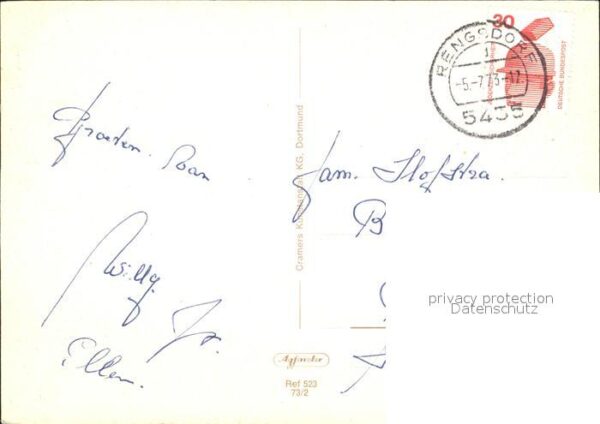 30
RENGSDORF
1
-5.-7.73-17
5455
DEUTSCHE BUNDESPOST
Groeten
Willy
Ellen.
Fam. Hofstra.
B
Cramers Kunstanstalt KG. Dortmund
Ref 523
73/2
privacy protection
Datenschutz